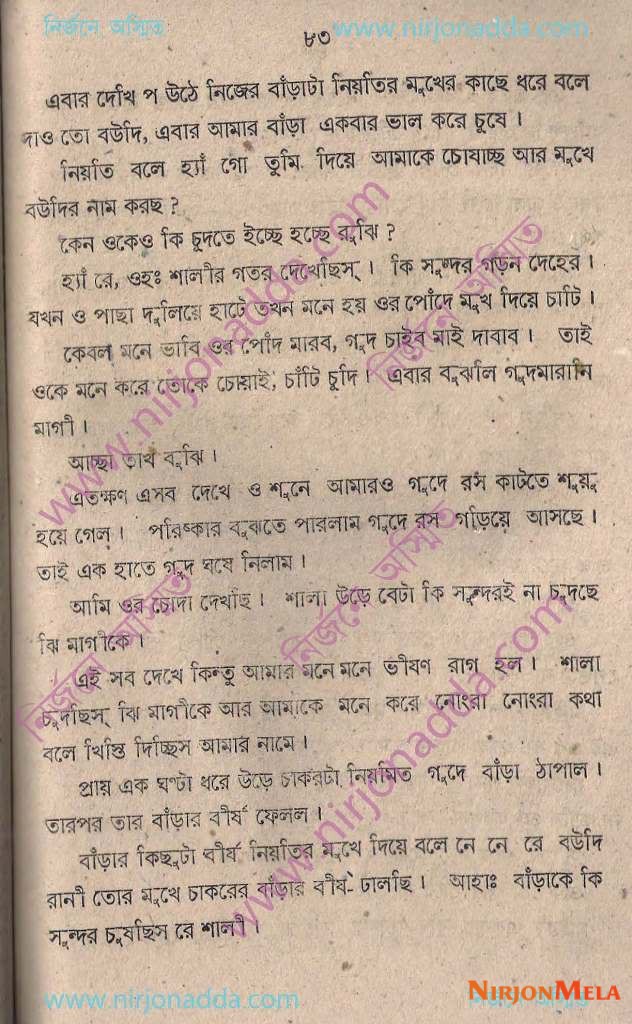 নির্জনে অস্মিত
৮৩
www.nirjonadda.com
এবার দেখি প উঠে নিজের বাঁড়াটা নিয়তির মুখের কাছে ধরে বলে
দাও তো বউদি, এবার আমার বাঁড়া একবার ভাল করে চুষে ।
নিয়তি বলে হ্যাঁ গো তুমি দিয়ে আমাকে চোষাচ্ছ আর মুখে
বউদির নাম করছ ?
কেন ওকেও কি চুদতে ইচ্ছে হচ্ছে বুঝি ?
হ্যাঁ রে, ওহঃ শালীর গতর দেখেছিস্ । কি সুন্দর গড়ন দেহের ।
যখন ও পাছা দুলিয়ে হাটে তখন মনে হয় ওর পোঁদে মুখ দিয়ে চাটি ।
কেবল মনে ভাবি ওর পোঁদ মারব, গুদ চাইব মাই দাবাব । তাই
ওকে মনে করে তোকে চোষাই, চাঁটি চুদি । এবার বুঝলি গুদমারানি
মাগী ।
আচ্ছা তাখ বুঝি ।
এতক্ষণ এসব দেখে ও শুনে আমারও গুদে রস কাটতে শুরু
হয়ে গেল । পরিষ্কার বুঝতে পারলাম গুদে রস গড়িয়ে আসছে ।
তাই এক হাতে গুদ ঘষে নিলাম ।
আমি ওর চোদা দেখছি । শালা উড়ে বেটা কি সুন্দরই না চুদছে
ঝি মাগীকে ।
এই সব দেখে কিন্তু আমার মনে মনে ভীষণ রাগ হল । শালা
চুদছিস্ ঝি মাগীকে আর আমাকে মনে করে নোংরা নোংরা কথা
বলে খিস্তি দিচ্ছিস আমার নামে ।
প্রায় এক ঘণ্টা ধরে উড়ে চাকরটা নিয়মিত গুদে বাঁড়া ঠাপাল ।
তারপর তার বাঁড়ার বীর্য ফেলল ।
বাঁড়ার কিছুটা বীর্য নিয়তির মুখে দিয়ে বলে নে নে রে বউদি
রানী তোর মুখে চাকরের বাঁড়ার বীর্য ঢালছি । আহাঃ বাঁড়াকে কি
সুন্দর চুষছিস রে শালী ।
www.nirjonadda.com
নির্জনে অস্মিত
www.nirjonadda.com
নির্জনে অস্মিত
নির্জনে অস্মিত
www.nirjonadda.com
www.nirjonadda.com
NIRJONMELA